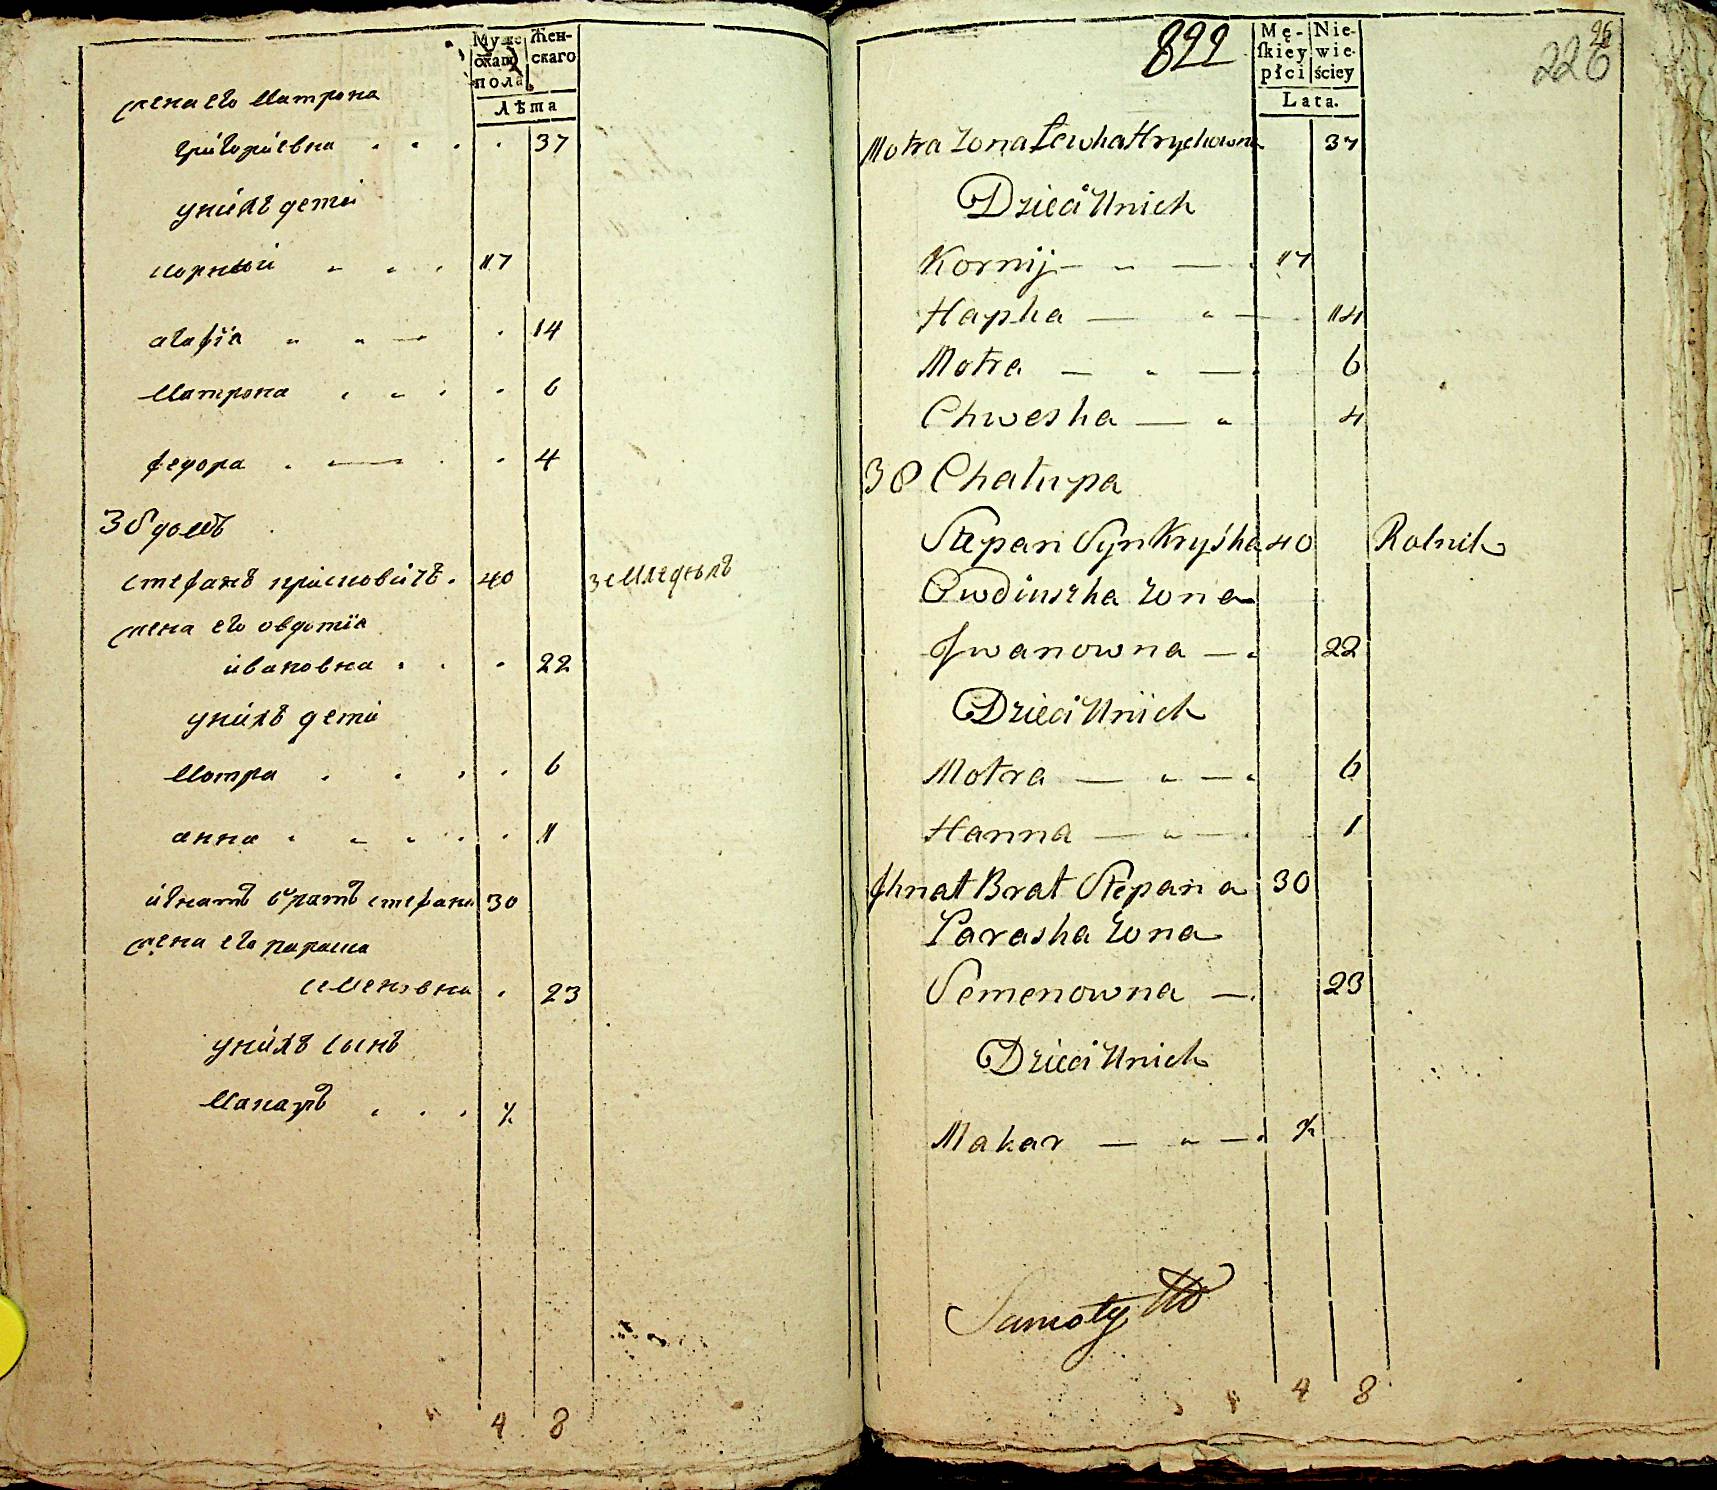 Мужескаго пола
Женскаго
Лѣта
жена его Матрона
григориевна 37
у нихъ дети
корнѣй 17
агафія 14
Матрона 6
федора 4
38 домъ
стефанъ крисковъ 40 земледѣлъ
жена его овдотіа
ивановна 22
у нихъ дети
Мотра 6
анна 1
игнатъ братъ стефана 30
жена его параска
семеновна 23
у нихъ сынъ
Макаръ ½
4 8
822
26
226
Męskiey płci
Niewieściey
Lata.
Motra Zona Lewka Hrychowna 37
Dzieci U nich
Kornij 17
Hapka 14
Motra 6
Chweska 4
38 Chatupa
Stepan Syn Kryśka 40 Rolnik
Owdiuszka Zona
Jwanowna 22
Dzieci U nich
Motra 6
Hanna 1
Jhnat Brat Stepana 30
Paraska Zona
Semenowna 23
Dzieci U nich
Makar ½
4 8